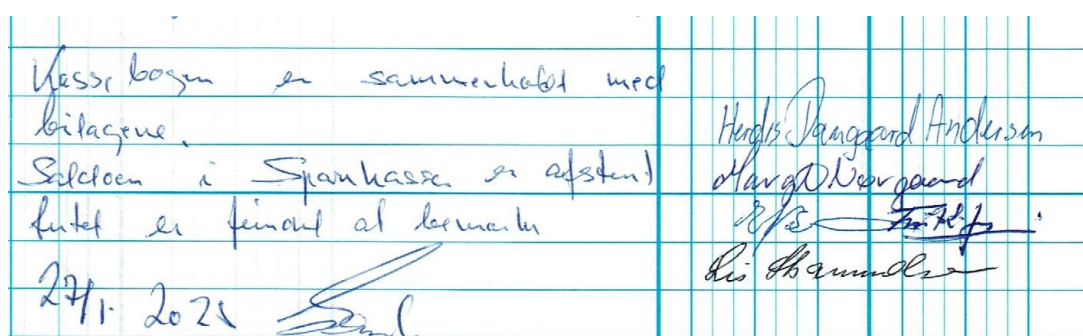 Kassebogen er sammenholdt med
bilagene.
Saldoen i Sparkassen er afstemt
Intet er fundet at bemærke
27/1. 2025
Herdis Damgaard Andersen
Margit Nørgaard
Lis